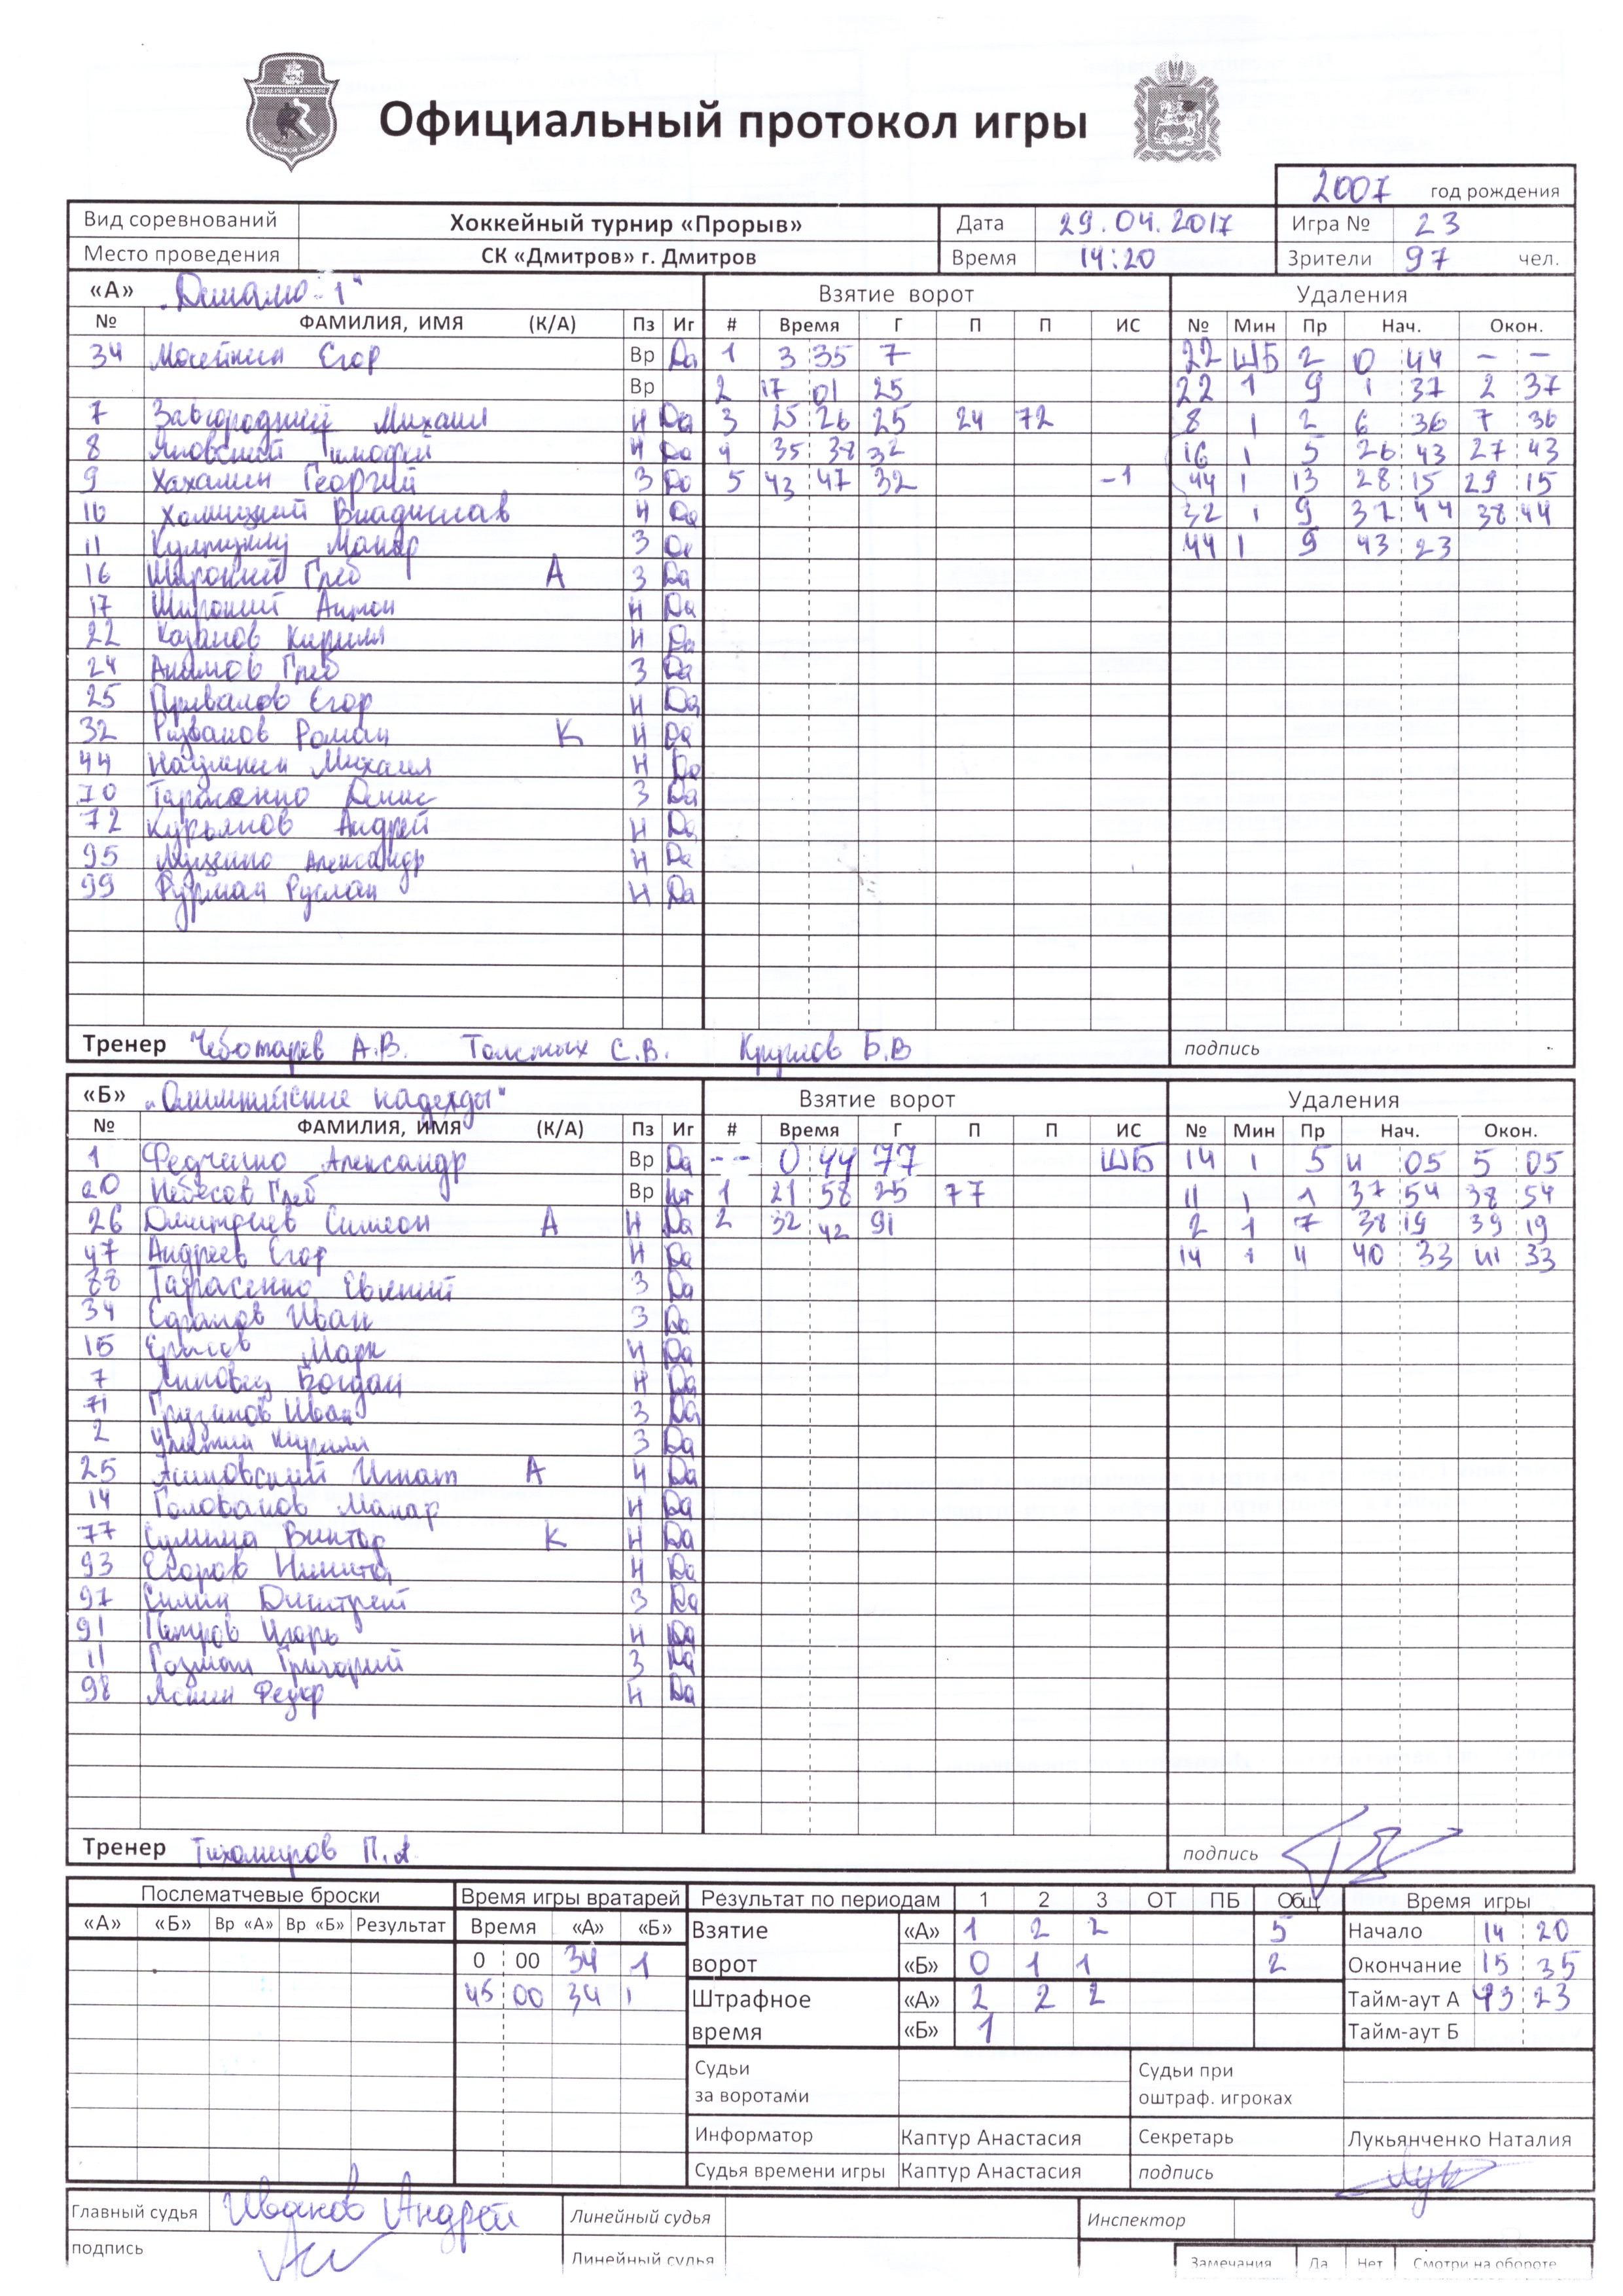 Официальный протокол игры
2007 год рождения
Вид соревнований Хоккейный турнир «Прорыв» Дата 29.04.2017 Игра № 23
Место проведения СК «Дмитров» г. Дмитров Время 14:20 Зрители 97 чел.
«А» "Динамо-1" Взятие ворот Удаления
№ ФАМИЛИЯ, ИМЯ (К/А) Пз Иг # Время Г П П ИС № Мин Пр Нач. Окон.
34 Мосейкин Егор Вр Да 1 3 35 7 22 ШБ 2 0 44 – –
Вр 2 17 01 25 22 1 9 1 37 2 37
7 Завгородний Михаил Н Да 3 25 26 25 24 72 8 1 2 6 36 7 36
8 Яновский Тимофей Н Да 4 35 38 32 16 1 5 26 43 27 43
9 Хахалин Георгий З Да 5 43 47 32 -1 44 1 13 28 15 29 15
10 Хомицкий Владислав Н Да 32 1 9 37 44 38 44
11 Макар З Да 44 1 9 43 23
16 Широкий Глеб А З Да
17 Широкий Антон Н Да
22 Казаков Кирилл Н Да
24 Акимов Глеб З Да
25 Привалов Егор Н Да
32 Розванов Роман К Н Да
44 Наумкин Михаил Н Да
70 Тарасенко Денис З Да
72 Курьянов Андрей Н Да
95 Луценко Александр Н Да
99 Фурман Руслан Н Да
Тренер Чеботарев А.В. Толстых С.В. Круглов Б.В подпись
«Б» "Олимпийские надежды" Взятие ворот Удаления
№ ФАМИЛИЯ, ИМЯ (К/А) Пз Иг # Время Г П П ИС № Мин Пр Нач. Окон.
1 Федченко Александр Вр Да -- 0 44 77 ШБ 14 1 5 4 05 5 05
20 Небесов Глеб Вр Нет 1 21 58 25 77 11 1 1 37 54 38 54
26 Дмитриев Симеон А Н Да 2 32 42 91 2 1 7 38 19 39 19
47 Андреев Егор Н Да 14 1 4 40 33 41 33
88 Тарасенко Евгений З Да
34 Иван З Да
15 Марк Н Да
7 Липовец Богдан Н Да
71 Грузинов Иван З Да
2 Кирилл З Да
25 Игнат А Н Да
14 Голованов Макар Н Да
77 Сулима Виктор К Н Да
93 Егоров Никита Н Да
97 Силин Дмитрий З Да
91 Петров Игорь Н Да
11 Гозман Григорий З Да
98 Яскин Федор Н Да
Тренер Тихомиров П.А. подпись
Послематчевые броски Время игры вратарей Результат по периодам 1 2 3 ОТ ПБ Общ Время игры
«А» «Б» Вр «А» Вр «Б» Результат Время «А» «Б» Взятие «А» 1 2 2 5 Начало 14 20
0 00 34 1 ворот «Б» 0 1 1 2 Окончание 15 35
45 00 34 1 Штрафное «А» 2 2 2 Тайм-аут А 43 23
время «Б» 1 Тайм-аут Б
Судьи за воротами Судьи при оштраф. игроках
Информатор Каптур Анастасия Секретарь Лукьянченко Наталия
Судья времени игры Каптур Анастасия подпись
Главный судья Иванов Андрей Линейный судья Инспектор
подпись Линейный судья Замечания Да Нет Смотри на обороте